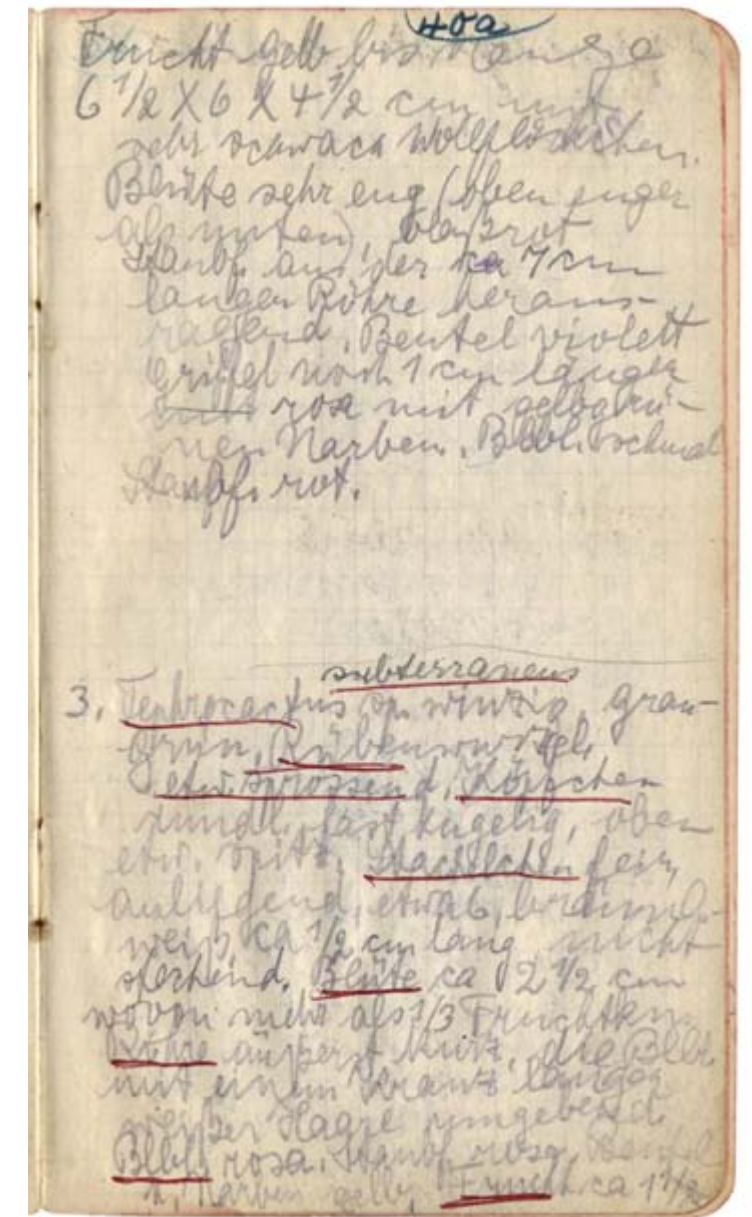 40a
Frucht gelb bis orange
6 1/2 X 6 X 4 1/2 cm mit
sehr schwach Wollflöckchen.
Blüte sehr eng (oben enger
als unten), blaßrot
Staubf. aus der ca 7 cm
langen Röhre heraus-
ragend, Beutel violett
Griffel noch 1 cm länger
rosa mit gelbgrü-
nen Narben. Blbl. schmal
Staubf. rot.
subterraneus
3. Tephrocactus winzig, grau-
grün, Rübenwurzel,
etw. sprossend, Köpfchen
rundl. fast kugelig, oben
etw. spitz. Stacheln fein,
anliegend, etwa 6, bräunl.
weiß, ca 1/2 cm lang, nicht
stechend. Blüte ca 2 1/2 cm
wovon mehr als 1/3 Fruchtkn.
Röhre äußerst kurz, die Blbl.
mit einem Kranz langer
weißer Haare umgebend.
Blbl. rosa. Staubf. rosa, Beutel
u. Narben gelb, Frucht ca 1 1/2